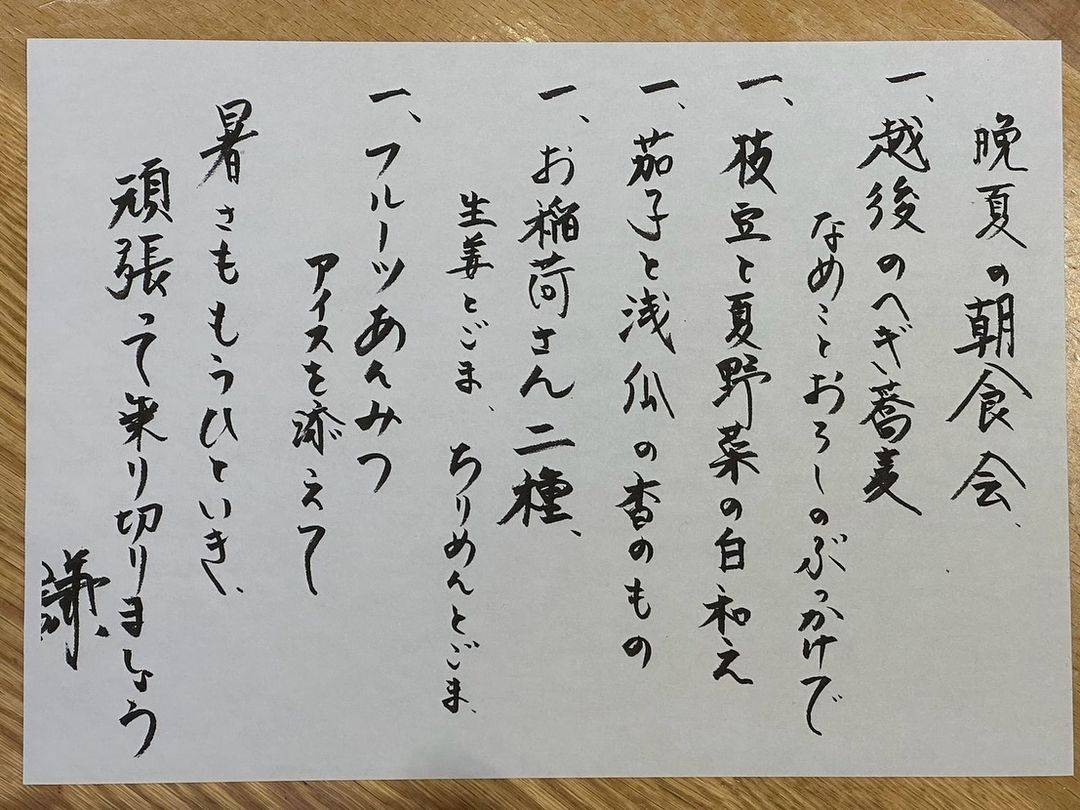 晩夏の朝食会、
一、越後のへぎ蕎麦
なめことおろしのぶっかけで
一、枝豆と夏野菜の白和え
一、茄子と浅瓜の香のもの
一、お稲荷さん二種、
生姜とごま、ちりめんとごま、
一、フルーツあんみつ
アイスを添えて
暑さももうひといき、
頑張って乗り切りましょう
謙